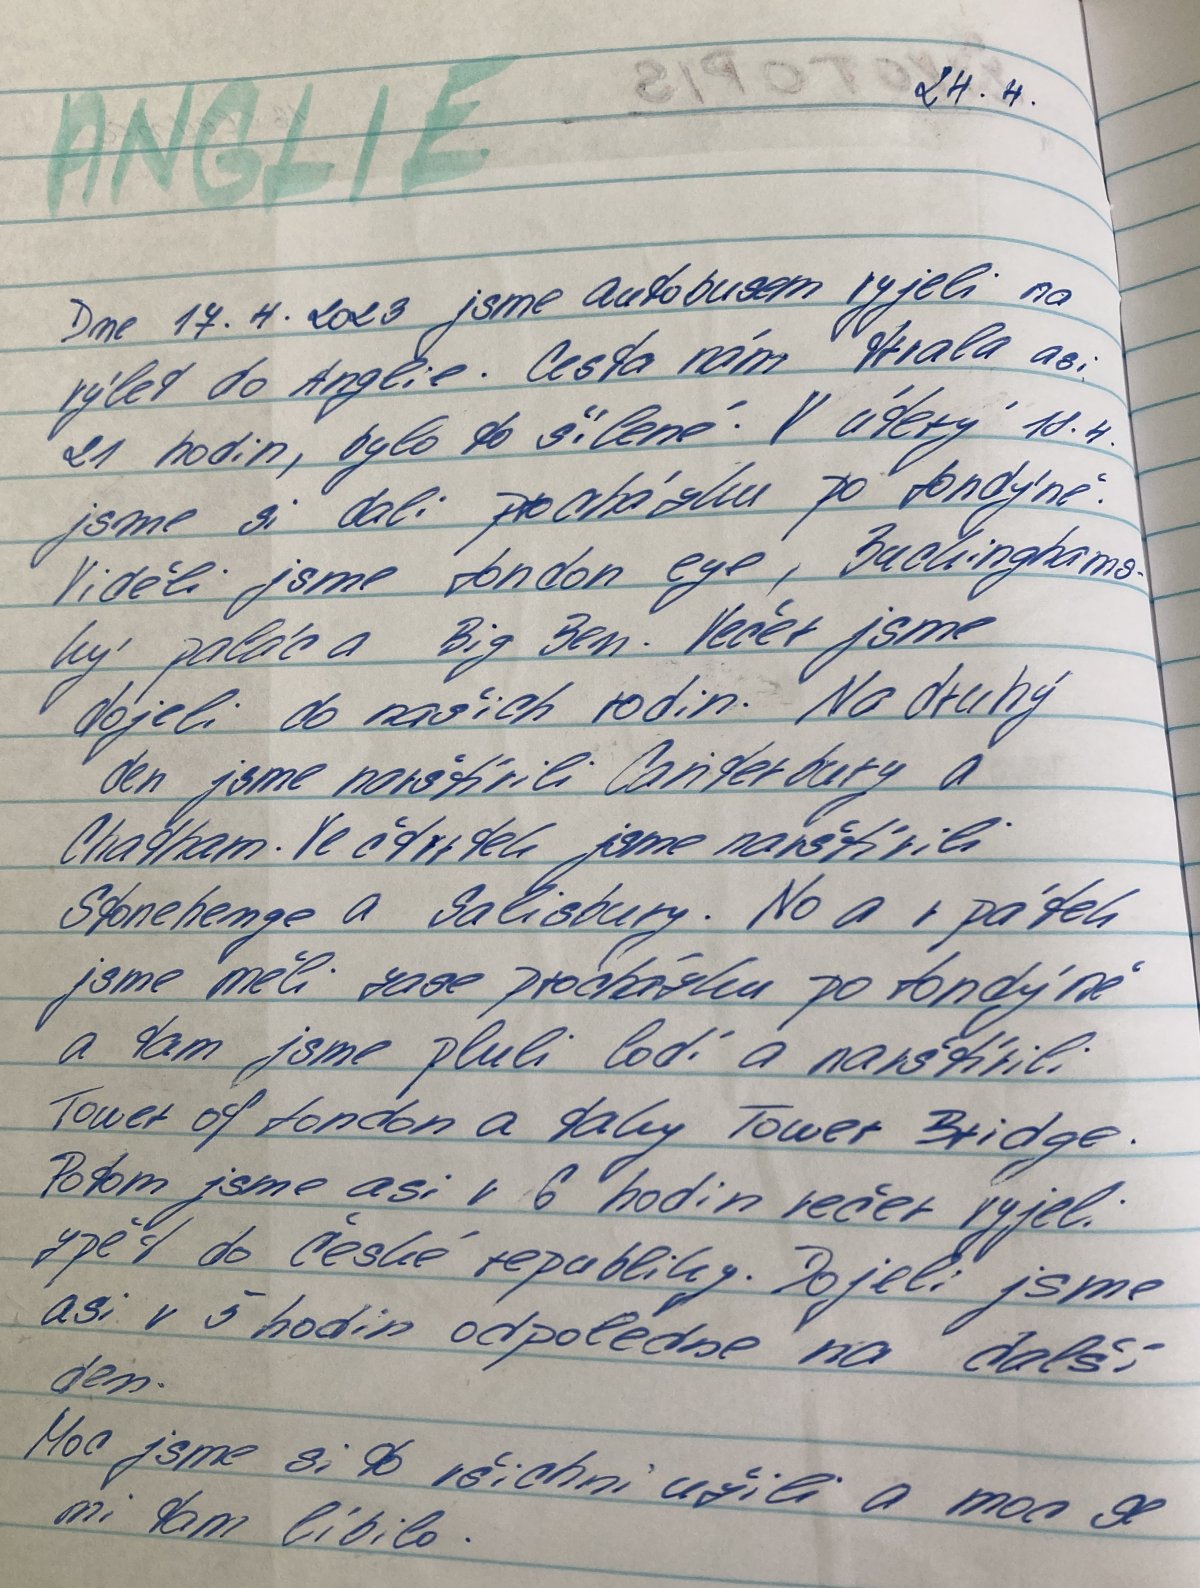 24. 4.
ANGLIE
Dne 17. 4. 2023 jsme autobusem vyjeli na
výlet do Anglie. Cesta nám trvala asi
21 hodin, bylo to šílené. V úterý 18. 4.
jsme si dali procházku po Londýně.
Viděli jsme London eye, Buckinghams-
ký palác a Big Ben. Večer jsme
dojeli do našich rodin. Na druhý
den jsme navštívili Canterbury a
Chatham. Ve čtvrtek jsme navštívili
Stonehenge a Salisbury. No a v pátek
jsme měli zase procházku po Londýně
a tam jsme pluli lodí a navštívili
Tower of London a taky Tower Bridge.
Potom jsme asi v 6 hodin večer vyjeli
zpět do České republiky. Dojeli jsme
asi v 5 hodin odpoledne na další
den.
Moc jsme si to všichni užili a moc se
mi tam líbilo.